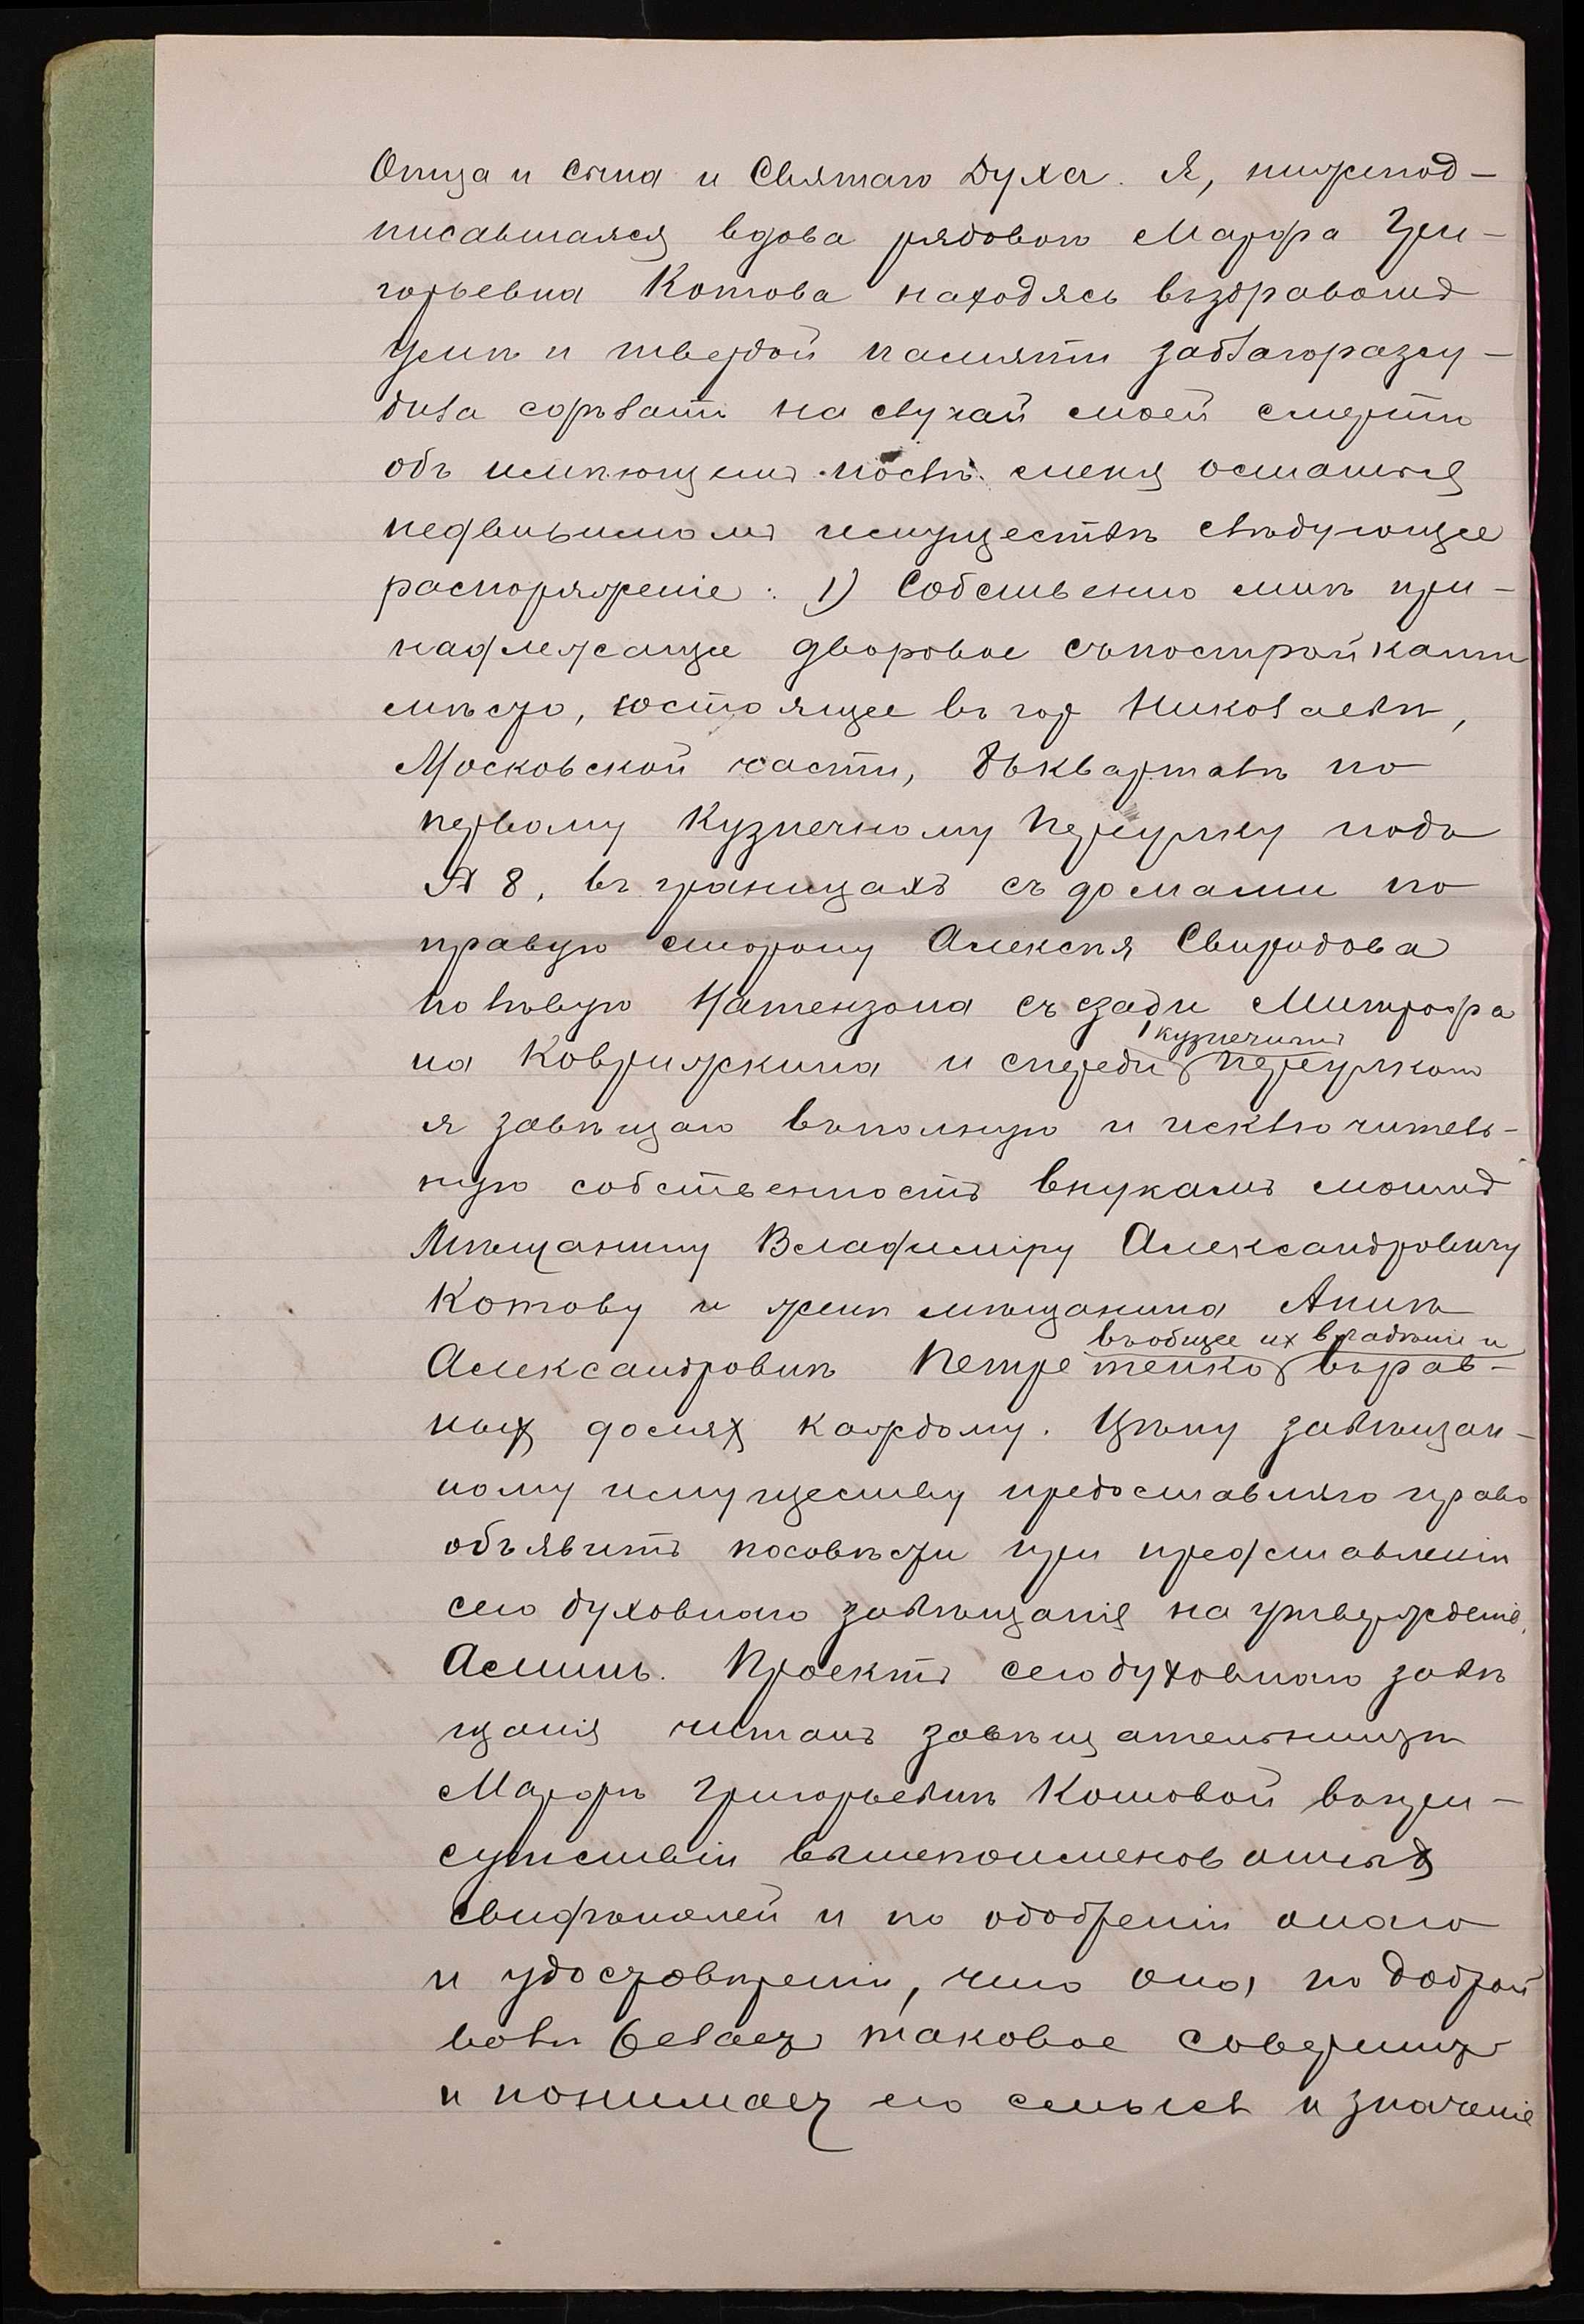 Отца и Сына и Святаго Духа. Я, нижепод-
писавшаяся вдова рядового Марфа Гри-
горьевна Котова находясь въздравомъ
умѣ и твердой памяти заблагоразсу-
дила сдѣлать на случай моей смерти
объ имѣющемъ послѣ меня остаться
недвижимомъ имуществѣ слѣдующее
распоряженіе: 1) Собственно мнѣ при-
надлежащее дворовое съпостройками
мѣсто, состоящее въ гор Николаевѣ,
Московской части, въкварталѣ по
первому Кузнечному переулку подъ
№ 8, въ границахъ съ домами по
правую сторону Алексѣя Свиридова
по лѣвую Натензона съ сзади Митрофа
на Коврижкина и спереди 1 кузнечнымъ переулкомъ
я завѣщаю въполную и исключитель-
ную собственность внукамъ моимъ
Мѣщанину Владиміру Александровичу
Котову и женѣ мѣщанина Аннѣ
Александровнѣ Петретенко въобщее их владѣніе и въ рав-
ных долях каждому. Цѣну завѣщан-
ному имуществу предоставляю право
объявить посовѣсти при представленіи
сего духовнаго завѣщанія на утвержденіе.
Аминь. Проектъ сего духовнаго завѣ
щанія читанъ завѣщательницѣ
Марфѣ Григорьевнѣ Котовой въпри-
сутствіи вышепоименованныхъ
свидѣтелей и по одобреніи онаго
и удостовѣреніи, что она по доброй
волѣ желаетъ таковое совершить
и понимает его смыслъ и значеніе